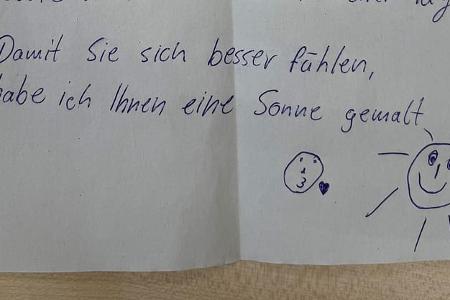 Damit Sie sich besser fühlen,
habe ich Ihnen eine Sonne gemalt